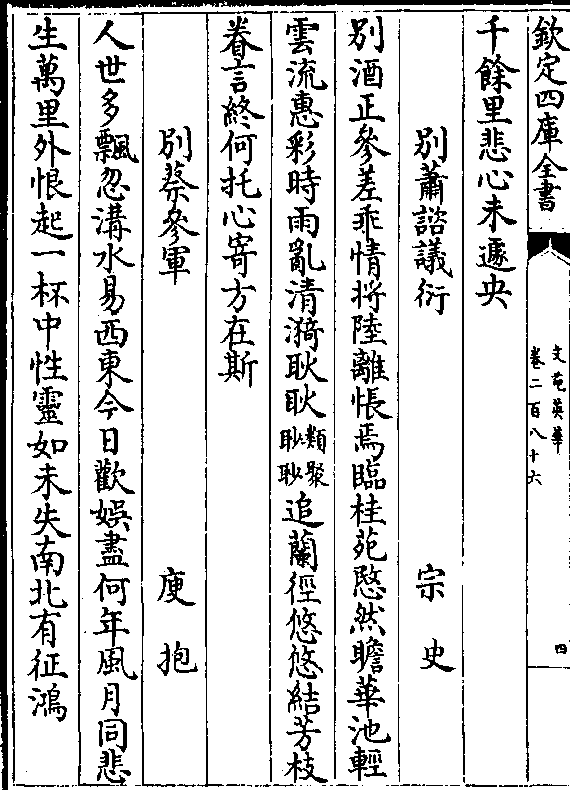 欽定四庫全書
文苑英華
卷二百八十六
四
千餘里悲心未遽央
別蕭諮議衍 宗史
別酒正參差乖情將陸離悵焉臨桂苑愍然瞻華池輕
雲流惠彩時雨亂清漪耿耿類聚耿耿追蘭徑悠悠結芳枝
眷言終何托心寄方在斯
別蔡參軍 庾抱
人世多飄忽溝水易西東今日歡娛盡何年風月同悲
生萬里外恨起一杯中性靈如未失南北有征鴻